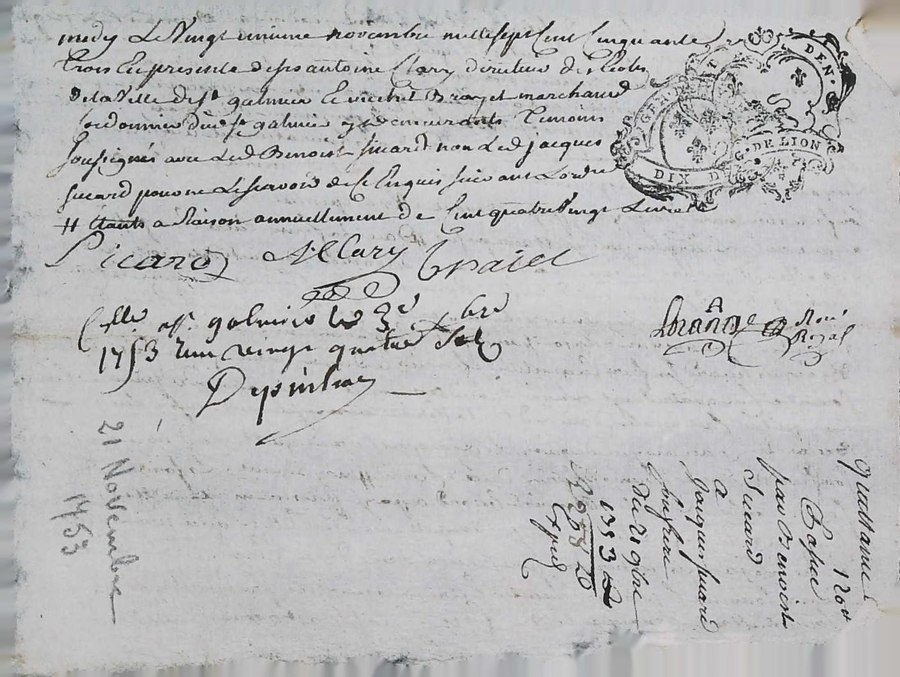 medy Le Vingt unieme novembre mille sept Cent Cinquante
trois En presence de sr antoine Clary directeur des Ecoles
de la Ville de st galmier Et michel Brayet marchand
Cordonnier dud st galmier y demeurants Temoins
soussignés avec Led Benoist sicard non Led jacques
sicard pour ne Le scavoir de ce Enquis suivant Lordre
# Etants a Raison annuellement de Cent quatre vingt Livres
DIX DEN. G. DE LION
Sicard AClary Brayet
Cllé a st galmier le 3e xbre
1753 Reçu vingt quatre sols
Royal
21 Novembre
1753
quittance
120#
passée
par Benoist
Sicard
a
jacques sicard
son frere
du 21 9bre
1753
Expée